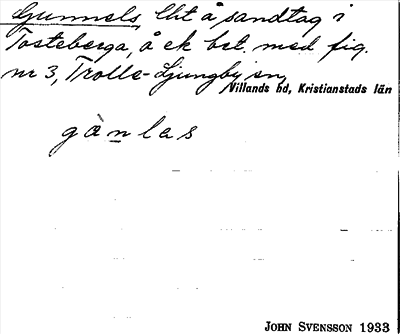 Gunnels, llt å sandtag i
Tosteberga, å ek bet. med fig.
nr 3, Trolle-Ljungby sn,
Villands hd, Kristianstads län
gànlas
JOHN SVENSSON 1933